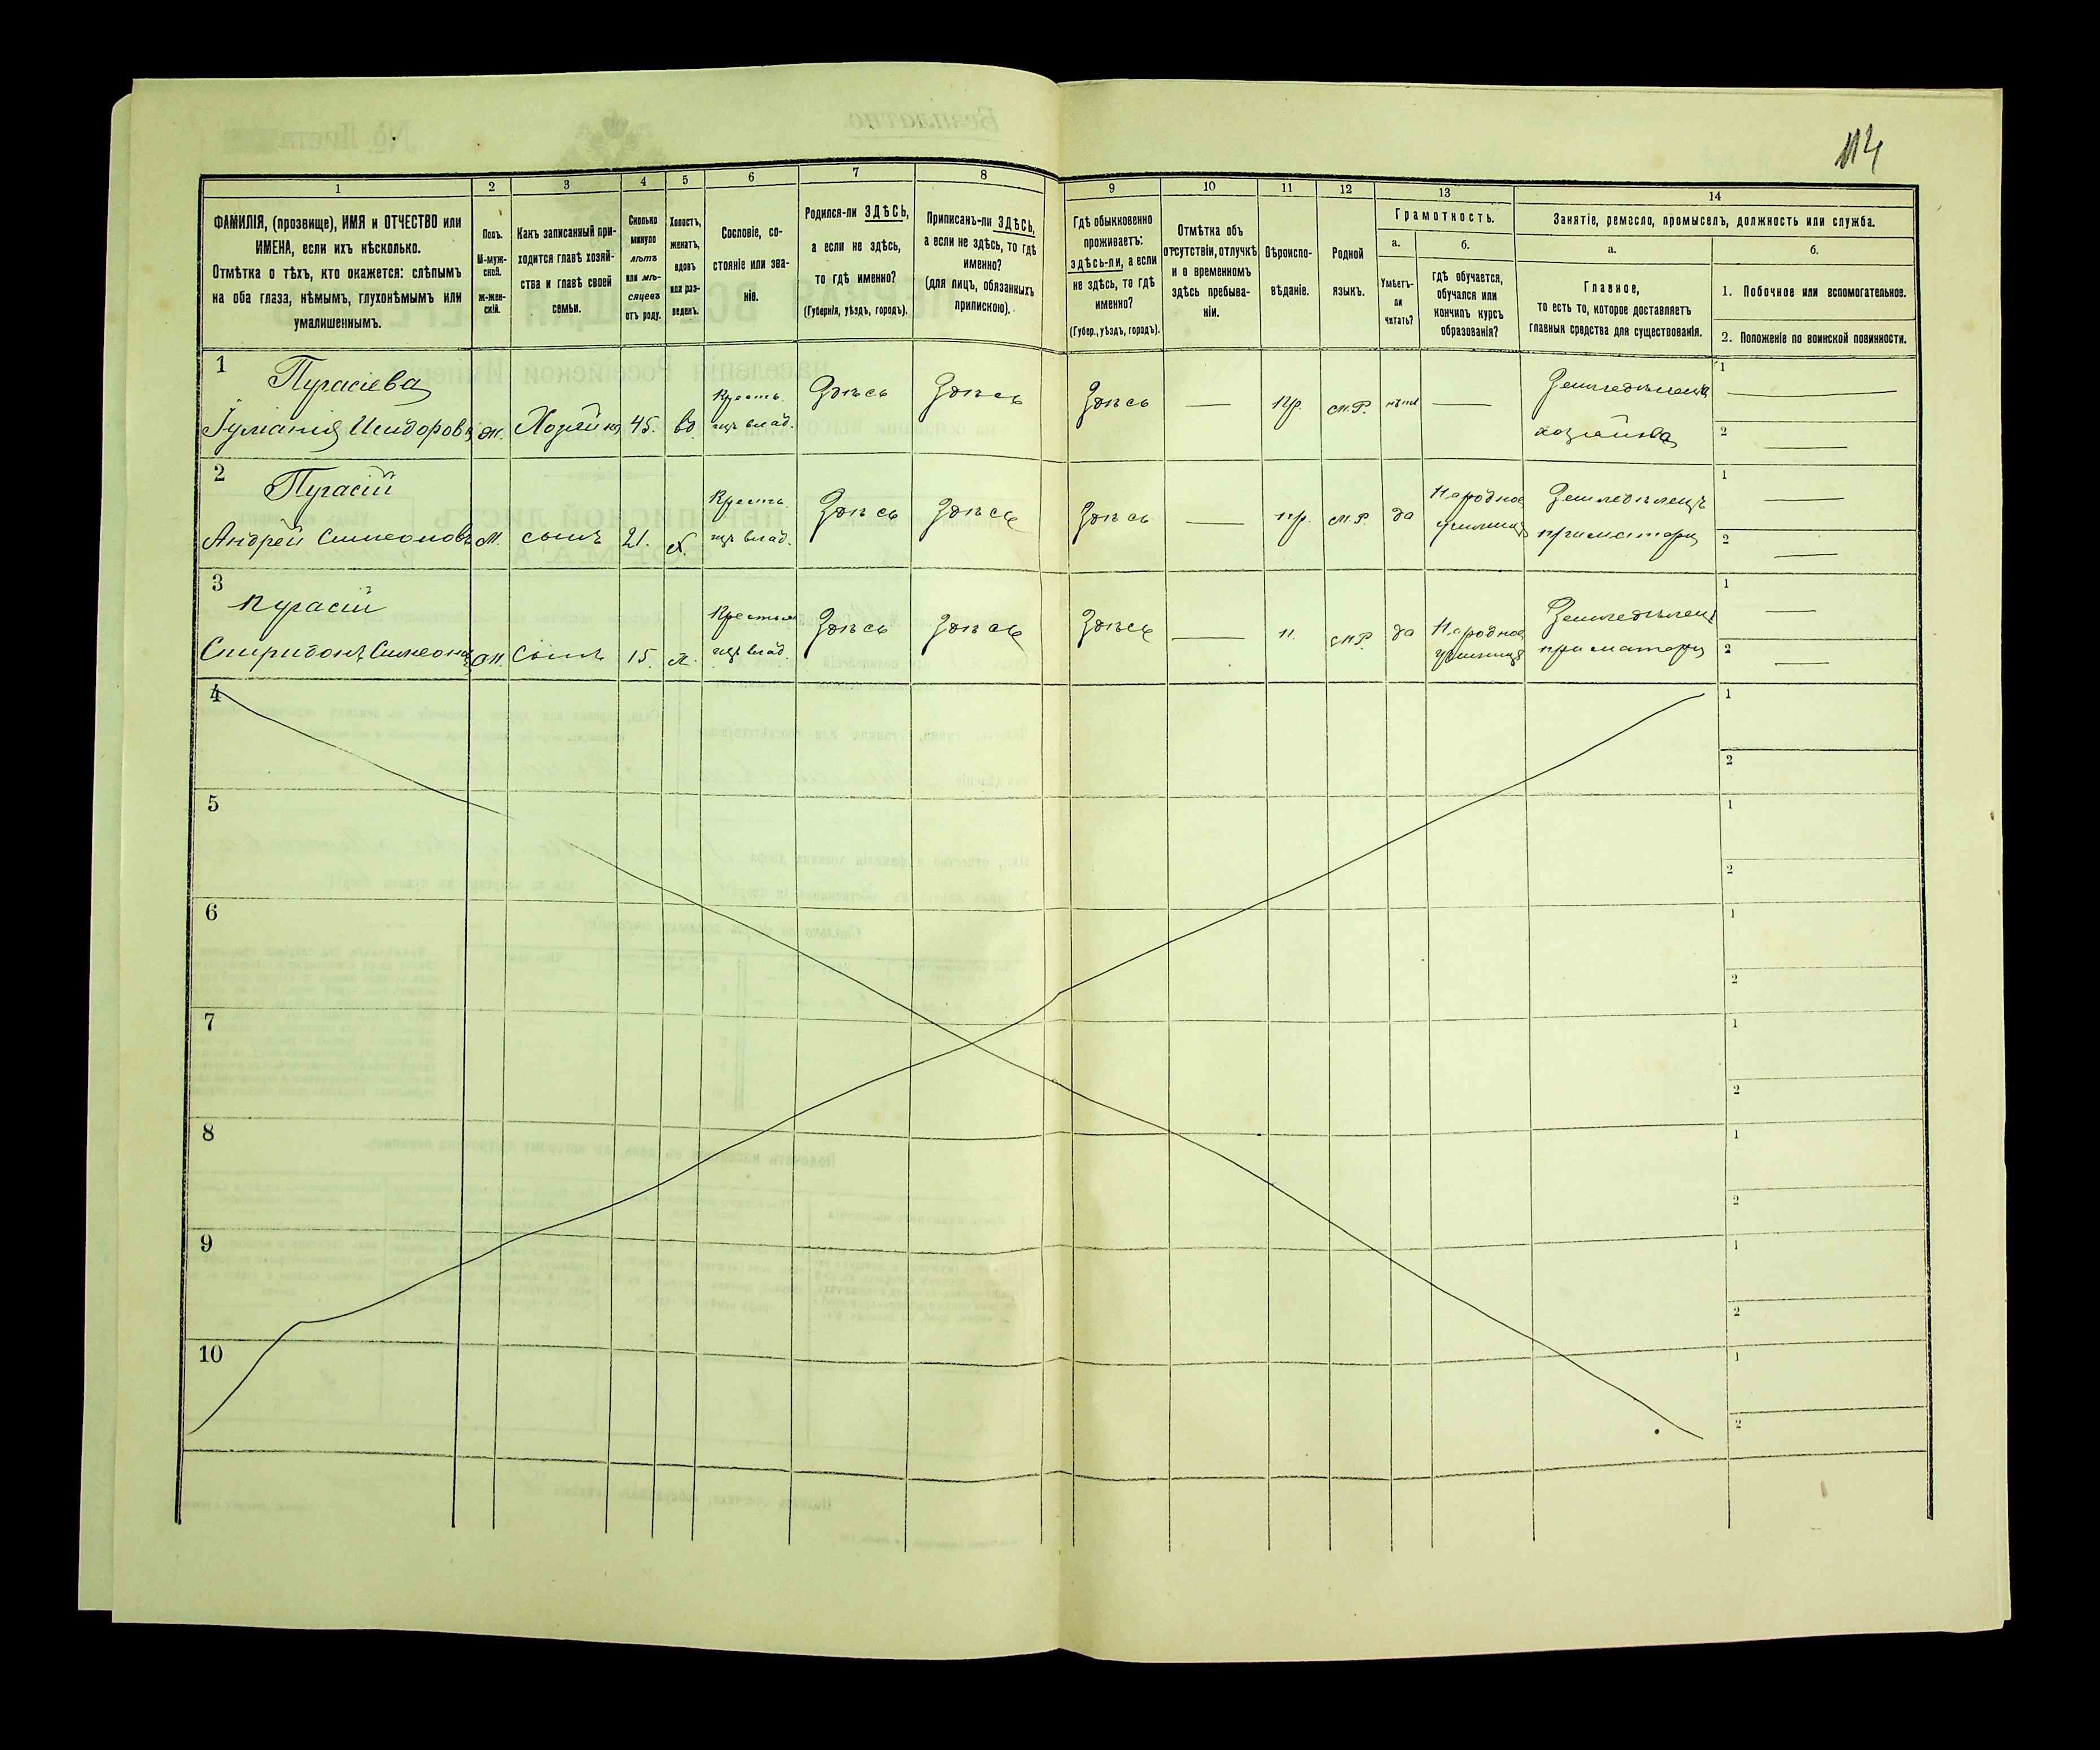 114
1 2 3 4 5 6 7 8 9 10 11 12 13 14
ФАМИЛІЯ, (прозвище), ИМЯ и ОТЧЕСТВО или
ИМЕНА, если ихъ нѣсколько.
Отмѣтка о тѣхъ, кто окажется: слѣпымъ
на оба глаза, нѣмымъ, глухонѣмымъ или
умалишеннымъ.
Полъ.
М-муж-
ской.
ж-жен-
скій.
Какъ записанный при-
ходится главѣ хозяй-
ства и главѣ своей
семьи.
Сколько
минуло
лѣтъ
или мѣ-
сяцевъ
отъ роду.
Холостъ,
женатъ,
вдовъ
или раз-
веденъ.
Сословіе, со-
стояніе или зва-
ніе.
Родился-ли ЗДѢСЬ,
а если не здѣсь,
то гдѣ именно?
(Губернія, уѣздъ, городъ).
Приписанъ-ли ЗДѢСЬ,
а если не здѣсь, то гдѣ
именно?
(для лицъ, обязанныхъ
припискою).
Гдѣ обыкновенно
проживаетъ:
здѣсь-ли, а если
не здѣсь, то гдѣ
именно?
(Губер., уѣздъ, городъ).
Отмѣтка объ
отсутствіи, отлучкѣ
и о временномъ
здѣсь пребыва-
ніи.
Вѣроиспо-
вѣданіе.
Родной
языкъ.
Грамотность.
а.
Умѣетъ-
ли
читать?
б.
гдѣ обучается,
обучался или
кончилъ курсъ
образованія?
Занятіе, ремесло, промыселъ, должность или служба.
а.
Главное,
то есть то, которое доставляетъ
главныя средства для существованія.
б.
1. Побочное или вспомогательное.
2. Положеніе по воинской повинности.
1
Пугасіева
Исидоров
ж. Хозяйка 45. вд
Крестъ.
влад.
Здѣсь Здѣсь Здѣсь — Пр. м.Р. нѣтъ —
Земледѣлецъ
1 —
2 —
2
Пугасій
Андрей Симеоновъ
м. сынъ 21. х.
Крестъ.
влад.
Здѣсь Здѣсь Здѣсь — пр. м.Р. да
Народное
училище
Земледѣлецъ
при матери
1 —
2 —
3
Пугасій
Спиридонъ Симеонов
м. Сынъ 15. х.
Крестьян
влад.
Здѣсь Здѣсь Здѣсь — п. м.Р. да
Народное
училище
Земледѣлецъ
при матери
1 —
2 —
4
1
2
5
1
2
6
1
2
7
1
2
8
1
2
9
1
2
10
1
2